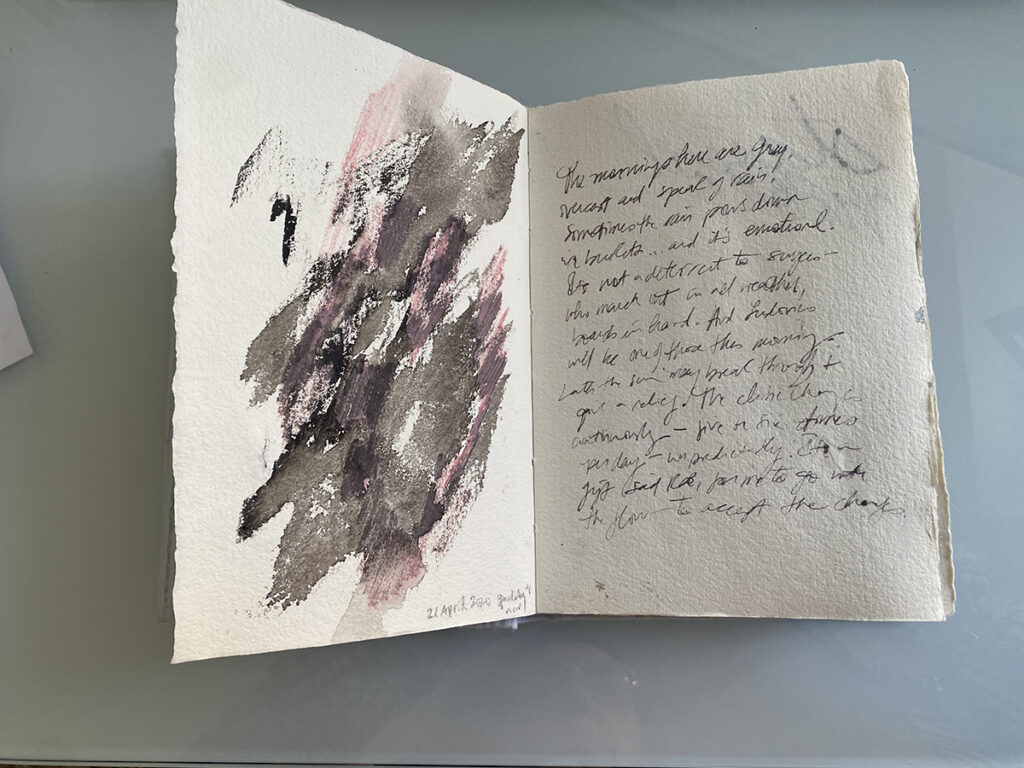 21 April 2020
The mornings here are grey,
overcast and speak of rain.
Sometimes the rain pours down
in buckets... and it's emotional.
It's not a deterrent to surfers –
who march off in all weather,
boards in hand. And Ludovic
will be one of those this morning –
Later the sun may break through &
give a relief. The clime changes
continuously – five or six times
per day – unpredictably. It's a
gift said Rae, for me to go with
the flow – to accept the changes.